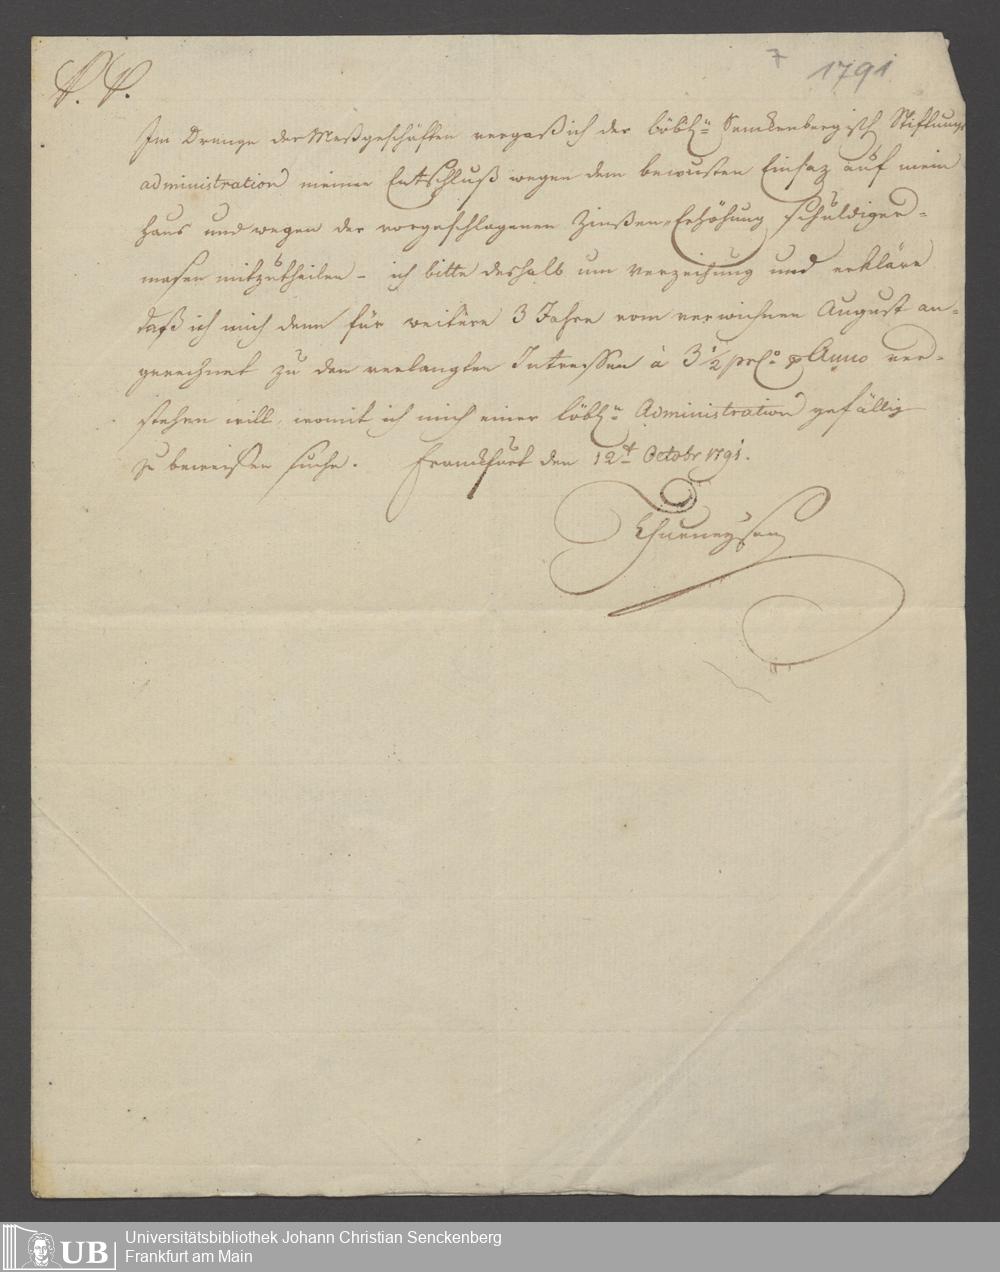 7 1791
P. P.
Im Drange der Meßgeschäften vergaß ich der löbln Senckenbergisch Stiftungs
administration meinen Entschluß wegen dem bewusten Einsaz auf mein
Haus und wegen der vorgeschlagenen Zinßen-Erhöhung schuldiger-
masen mitzutheilen - ich bitte deshalb um Verzeihung und erkläre
daß ich mich denn für weitere 3 Jahre vom verwichnen August an-
gerechnet zu den verlangten Intressen à 3 1/2 prCo p Anno ver-
stehen will, womit ich mich einer löbln Administration gefällig
zu beweisen suche. Franckfurt den 12t Octobr 1791.
Thurneyssen
UB Universitätsbibliothek Johann Christian Senckenberg
Frankfurt am Main